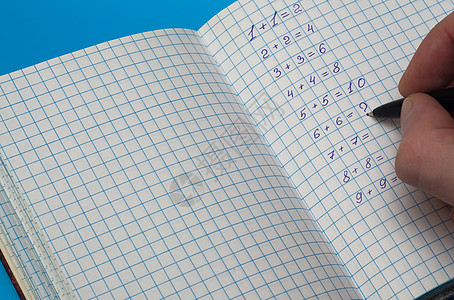 1 + 1 = 2
2 + 2 = 4
3 + 3 = 6
4 + 4 = 8
5 + 5 = 10
6 + 6 = ?
7 + 7 =
8 + 8 =
9 + 9 =